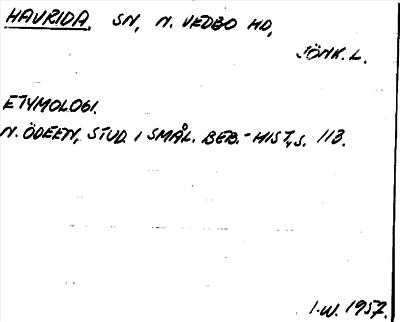 HAVRIDA, SN, N. VEDBO HD,
JÖNK. L.
ETYMOLOGI.
N. ÖDEEN, STUD. I SMÅL. BEB.-HIST., S. 113.
I.W. 1957.